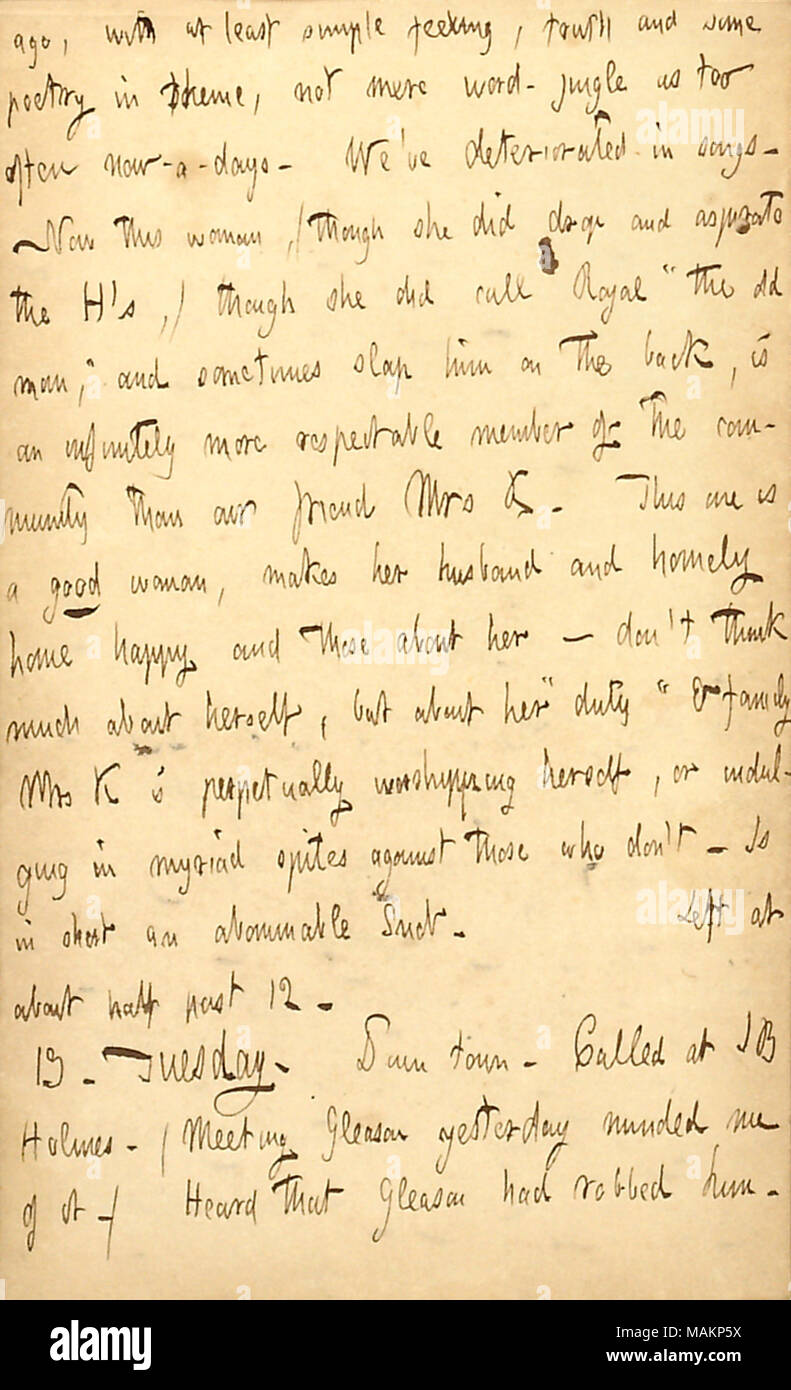 ago, with at least simple feeling, truth and some
poetry in theme, not mere word-jingle as too
often now-a-days- We've deteriorated in songs-
-Now this woman, /though she did drop and aspirate
the H's,/ though she did call Royal "the old
man," and sometimes slap him on the back, is
an infinitely more respectable member of the com-
munity than our friend Mrs K-. This one is
a good woman, makes her husband and homely
home happy and those about her - don't think
much about herself, but about her "duty" & family
Mrs K is perpetually worshipping herself, or indul-
ging in myriad spites against those who don't - Is
in short an abominable Snob- Left at
about half past 12-
13-Tuesday- Down town- Called at J B
Holmes- /Meeting Gleason yesterday minded me
of it-/ Heard that Gleason had robbed him-
alamy
alamy
alamy
alamy
Image ID: MAKP5X
www.alamy.com